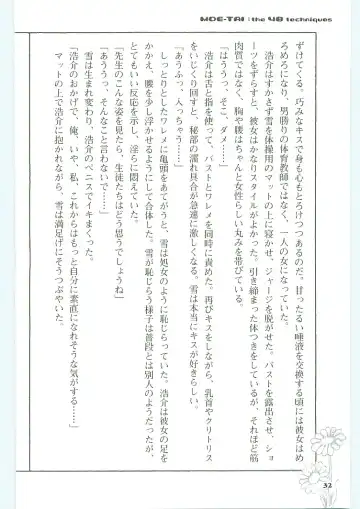 MOE-TAI : the 48 techniques
ずけてくる。巧みなキスで身も心もとろけつつあるのだ。甘ったるい唾液を交換する頃には彼女はめ
ろめろになり、男勝りの体育教師ではなく、一人の女になっていた。
浩介はすかさず雪を体操用のマットの上に寝かせ、ジャージを脱がせた。バストを露出させ、ショ
ーツをずらすと、彼女はかなりスタイルがよかった。引き締まった体つきをしているが、それほど筋
肉質ではなく、胸や腰はちゃんと女性らしい丸みを帯びている。
「はううっ、そこ、ダメ……」
浩介は舌と指を使って、バストとワレメを同時に責めた。再びキスをしながら、乳首やクリトリス
をいじり回すと、秘部の濡れ具合が急速に激しくなる。雪は本当にキスが好きらしい。
「あうふっ、入っちゃう……」
しっとりとしたワレメに亀頭をあてがうと、雪は処女のように恥じらっていた。浩介は彼女の足を
かかえ、腰を少し浮かせるようにして合体した。雪が恥じらう様子は普段とは別人のようだったが、
とてもいい反応を示し、淫らに悶えていた。
「先生のこんな姿を見たら、生徒たちはどう思うでしょうね」
「あううっ、そんなこと言わないで……」
雪は生まれ変わり、浩介のペニスでイキまくった。
「浩介のおかげで、俺、いや、私、これからはもっと自分に素直になれそうな気がする……」
マットの上で浩介に抱かれながら、雪は満足げにそうつぶやいた。
32